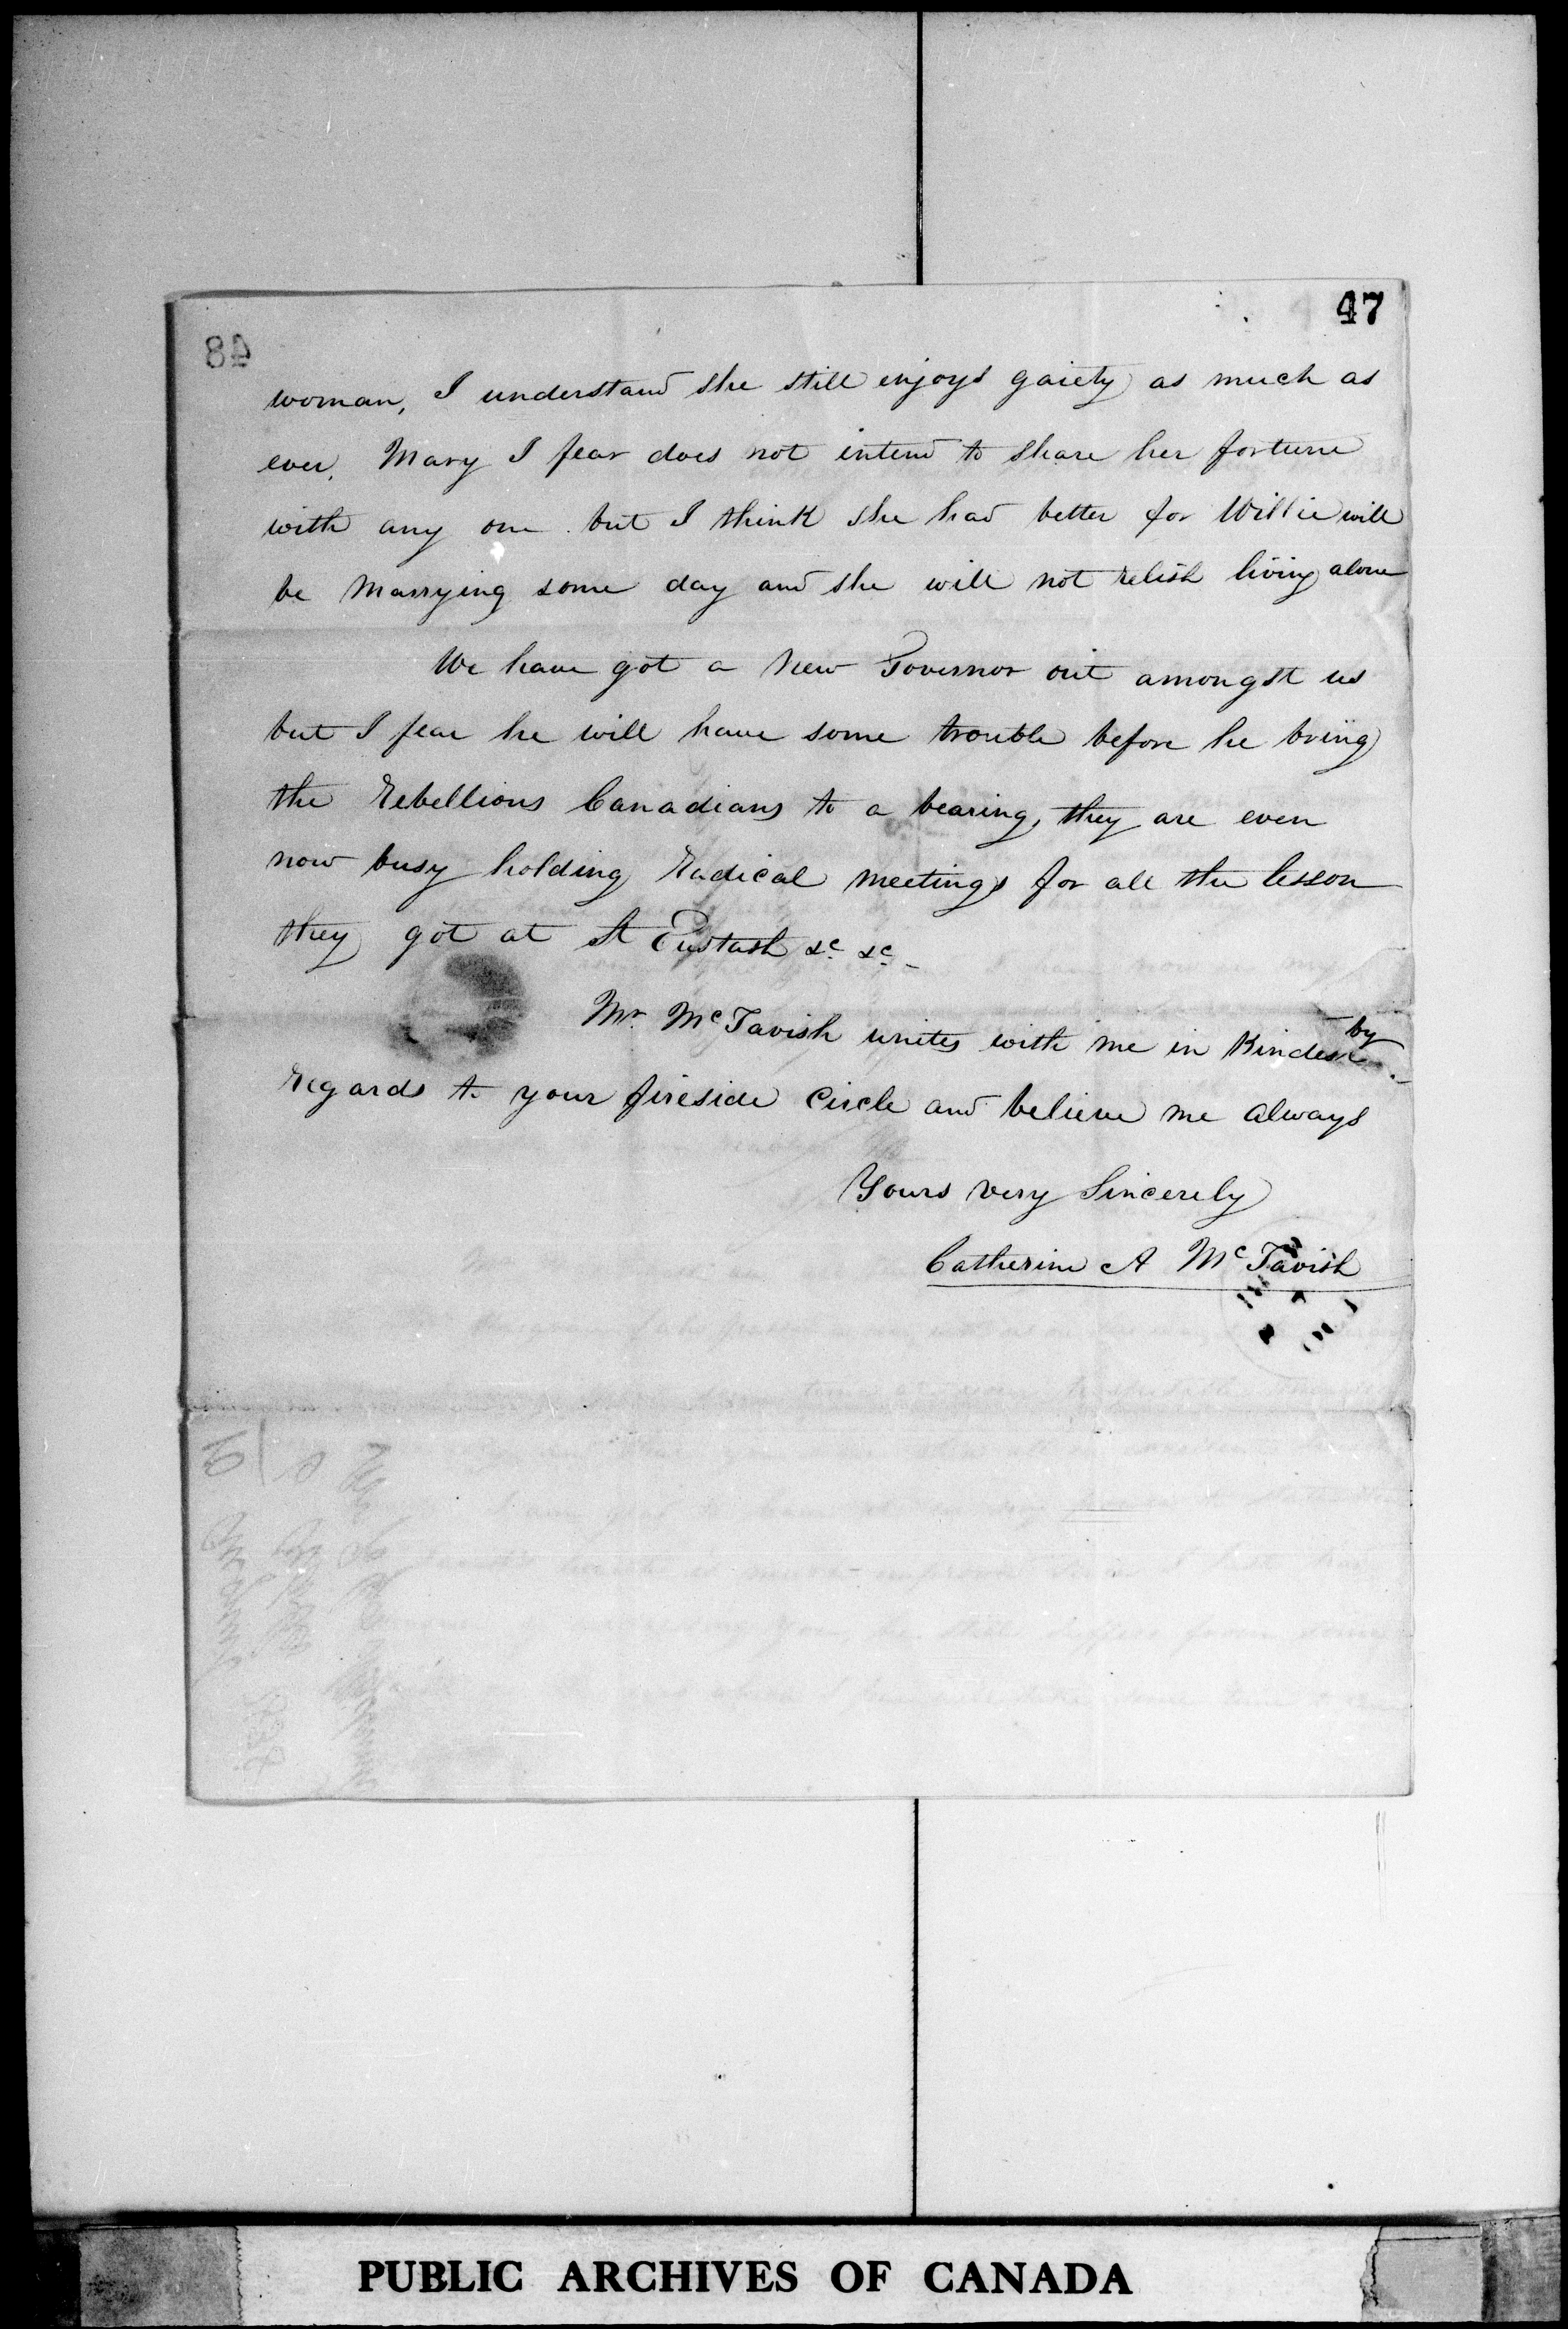 47
48
woman, I understand she still enjoys gaiety as much as
ever, Mary I fear does not intend to share her fortune
with any one but I think she had better for Willie will
be marrying some day and she will not relish living alone
We have got a New Governor out amongst us
but I fear he will have some trouble before he bring
the Rebellious Canadians to a bearing, they are even
now busy holding Radical meetings for all the lesson
they got at St Eustash &c &c –
Mr. McTavish unites with me in Kindest
by
regards to your fireside Circle and believe me always
Yours very Sincerely
Catherine A McTavish
PUBLIC ARCHIVES OF CANADA